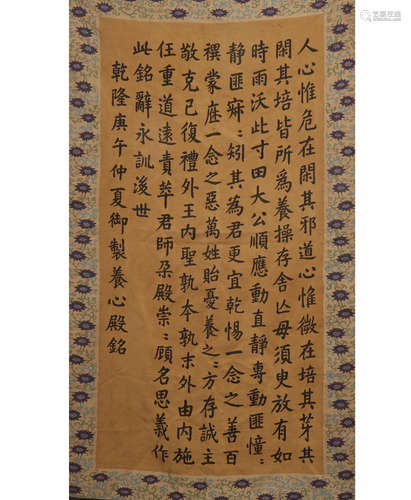 人心惟危在閑其邪道心惟微在培其芽其
閑其培皆所為養操存舍亾毋須臾放有如
時雨沃此寸田大公順應動直靜專動匪憧〻
靜匪寐〻矧其為君更宜乾惕一念之善百
禩蒙庥一念之惡萬姓貽憂養之〻方存誠主
敬克己復禮外王内聖孰本孰末外由内施
任重道遠責萃君師朶殿崇〻顧名思義作
此銘辭永訓後世
乾隆庚午仲夏御製養心殿銘